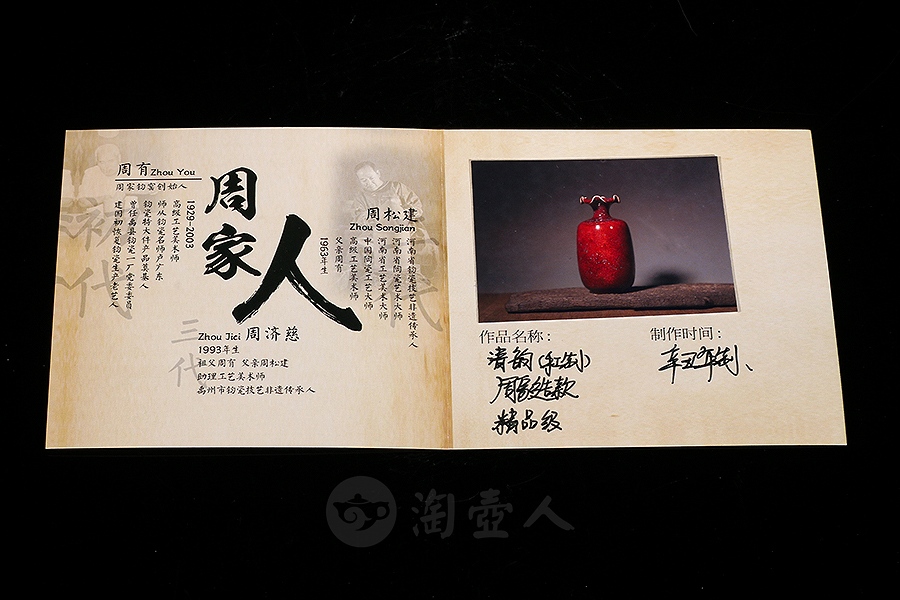 周有 Zhou You
周家钧窑创始人
1929-2003
高级工艺美术师
师从钧瓷名师卢广东
钧瓷特大件产品奠基人
曾任禹县钧瓷一厂党委委员
建国初恢复钧瓷生产老艺人
初代
周家人
周松建
Zhou Songjian
河南省钧瓷技艺非遗传承人
河南省陶瓷艺术大师
河南省工艺美术大师
中国陶瓷工艺大师
高级工艺美术师
父亲周有
1963年生
二代
三代
Zhou Jici 周济慈
1993年生
祖父周有 父亲周松建
助理工艺美术师
禹州市钧瓷技艺非遗传承人
作品名称：
清韵（红釉）
周家造款
精品级
制作时间：
辛丑年制、
淘壶人